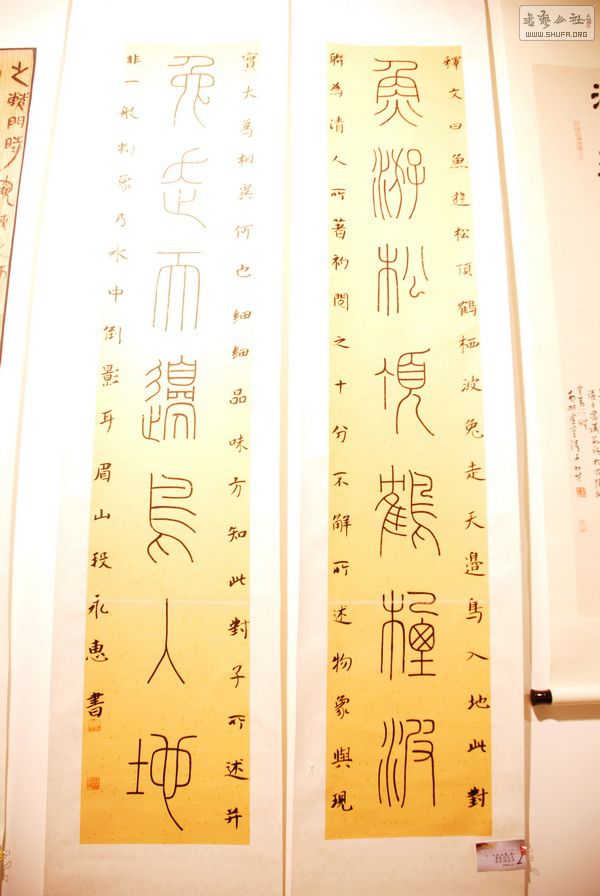 書藝公社
WWW.SHUFA.ORG
釋文曰魚遊松頂鶴栖波兔走天邊鳥入地此對
魚游松頂鶴棲波
聯為清人所著初閱之十分不解所述物象與現
實大為相異何也細細品味方知此對子所述并
兔走天邊鳥入地
非一般物象乃水中倒影耳眉山段永惠書